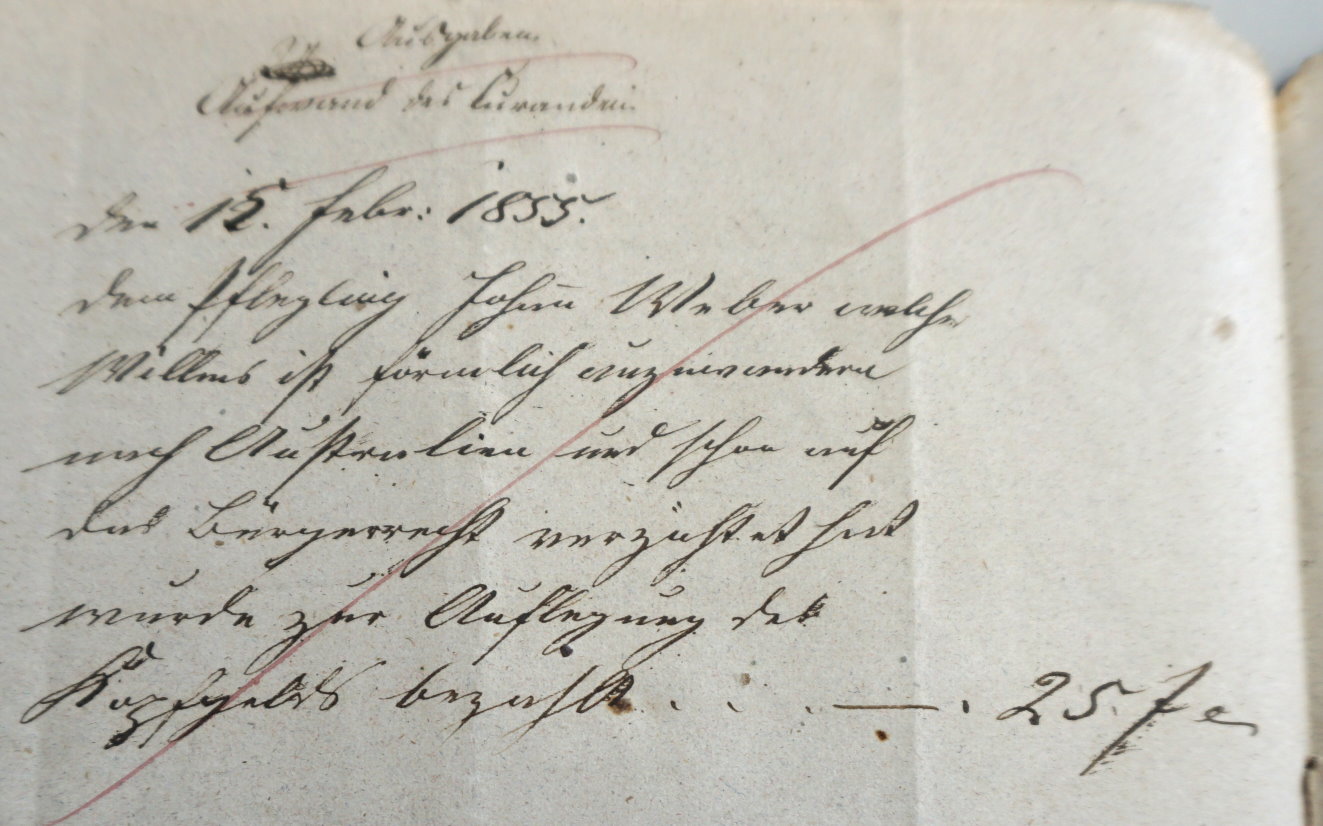 Ausgaben.
Aufwand des Curanden.
den 15. Febr: 1855.
dem Pflegling Johann Weber welcher
Willens ist förmlich auszuwandern
nach Australien und schon auf
das Bürgerrecht verzichtet hat
wurde zur Auflegung des
Kopfgelds bezahlt . . . — . 25. f